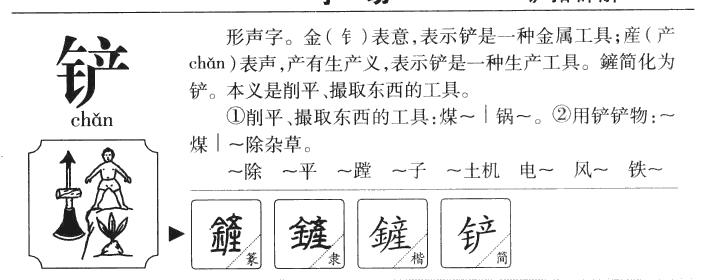 铲
chǎn
形声字。金(钅)表意,表示铲是一种金属工具;産(产
chǎn)表声,产有生产义,表示铲是一种生产工具。鏟简化为
铲。本义是削平、撮取东西的工具。
①削平、撮取东西的工具:煤~|锅~。②用铲铲物:~
煤|~除杂草。
~除 ~平 ~蹚 ~子 ~土机 电~ 风~ 铁~
鏟 篆
鏟 隶
鏟 楷
铲 简